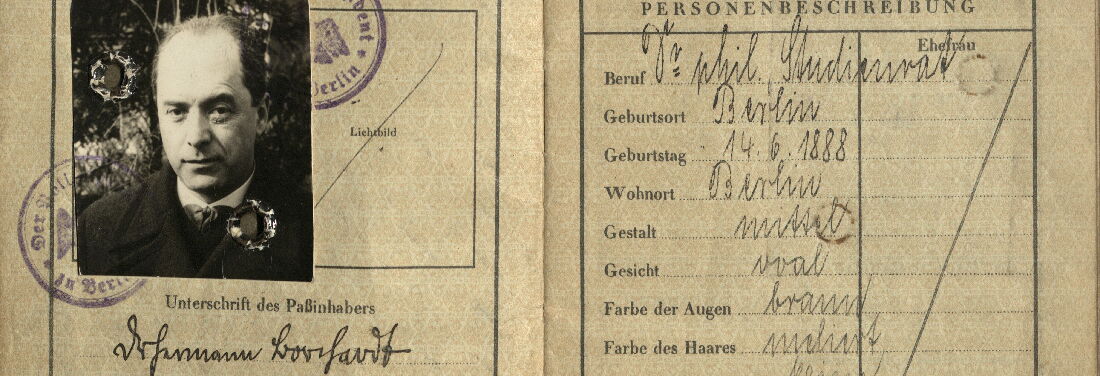 Der Poli
in Berlin
dent
Berlin
Lichtbild
Unterschrift des Paßinhabers
Dr Hermann Borchardt
PERSONENBESCHREIBUNG
Ehefrau
Beruf Dr. phil. Studienrat
Geburtsort Berlin
Geburtstag 14. 6. 1888
Wohnort Berlin
Gestalt mittel
Gesicht oval
Farbe der Augen braun
Farbe des Haares meliert